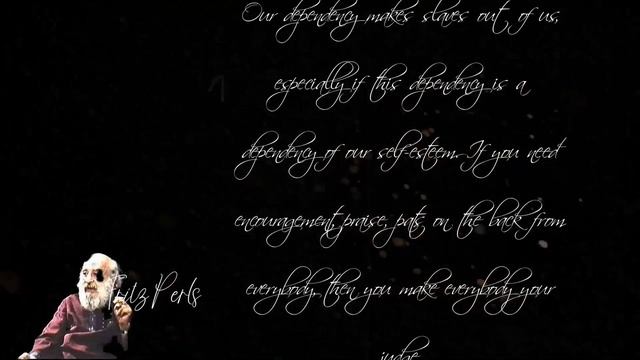 Our dependency makes slaves out of us,
especially if this dependency is a
dependency of our self-esteem. If you need
encouragement, praise, pats on the back from
everybody, then you make everybody your
judge.
Fritz Perls